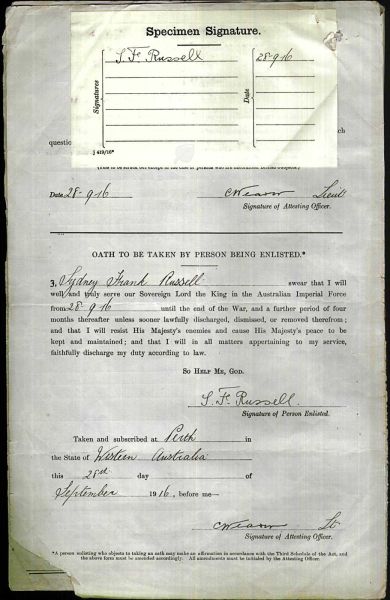 Specimen Signature.
Signatures
S. F. Russell
Date
28-9-16
ch
questio
Date 28-9-16
Lieut
Signature of Attesting Officer.
OATH TO BE TAKEN BY PERSON BEING ENLISTED.*
3. Sydney Frank Russell swear that I will
well and truly serve our Sovereign Lord the King in the Australian Imperial Force
from 28-9-16 until the end of the War, and a further period of four
months thereafter unless sooner lawfully discharged, dismissed, or removed therefrom;
and that I will resist His Majesty's enemies and cause His Majesty's peace to be
kept and maintained; and that I will in all matters appertaining to my service,
faithfully discharge my duty according to law.
SO HELP ME, GOD.
S. F. Russell.
Signature of Person Enlisted.
Taken and subscribed at Perth in
the State of Western Australia
this 28th day of
September 1916, before me—
Lt
Signature of Attesting Officer.
*A person enlisting who objects to taking an oath may make an affirmation in accordance with the Third Schedule of the Act, and
the above form must be amended accordingly. All amendments must be initialed by the Attesting Officer.